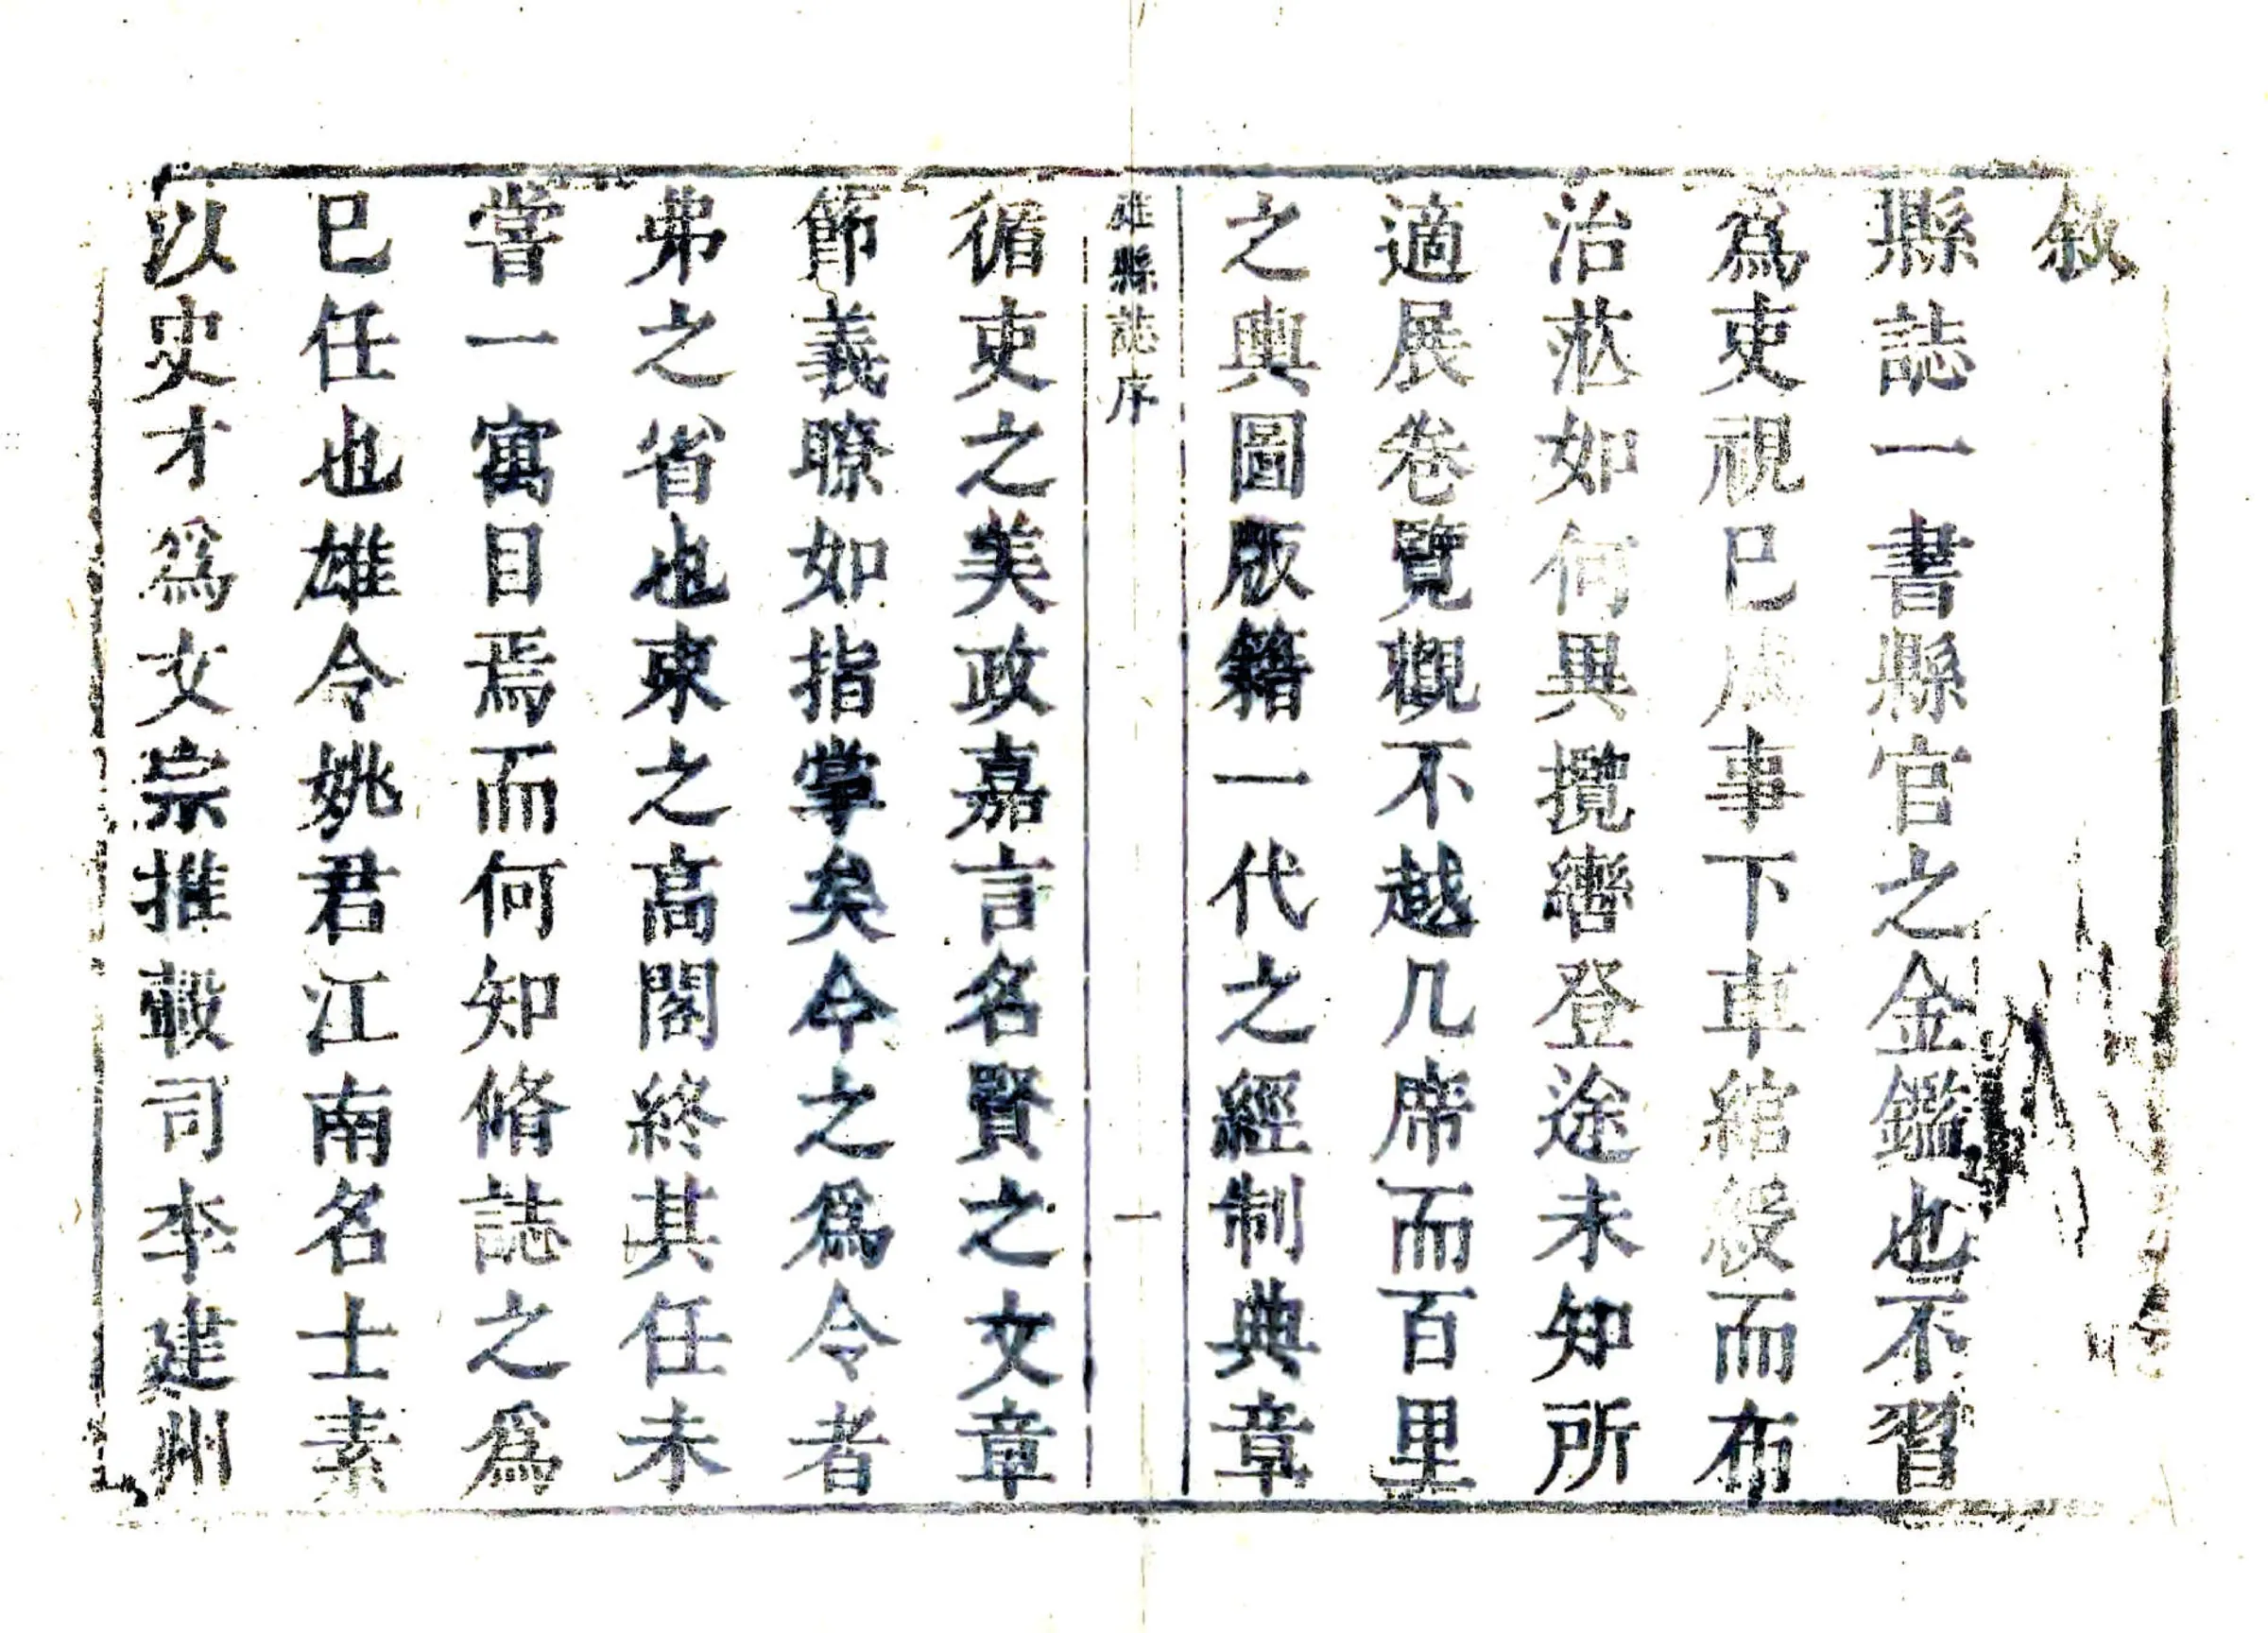 敘
縣誌一書縣官之金鑑也不習
爲吏視已成事下車綰綬而布
治茫如何異攬轡登途未知所
適展卷覽觀不越几席而百里
之輿圖版籍一代之經制典章
雄縣誌序
一
循吏之美政嘉言名賢之文章
節義瞭如指掌矣今之爲令者
弗之省也束之高閣終其任未
嘗一寓目焉而何知脩誌之爲
已任也雄令姚君江南名士素
以史才爲文宗推轂司李建州